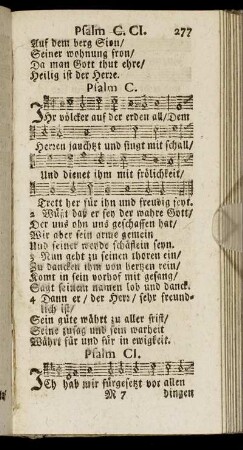 Psalm C. CI. 277
Auf dem berg Sion/
Seiner wohnung fron/
Da man Gott thut ehre/
Heilig ist der Herre.
Psalm C.
IHr völcker auf der erden all/Dem
Herren jauchtzt und singt mit schall/
Und dienet ihm mit frölichkeit/
Trett her für ihn und freudig seyt.
2 Wüßt daß er sey der wahre Gott/
Der uns ohn uns geschaffen hat/
Wir aber sein arme gemein
Und seiner weyde schäflein seyn.
3 Nun geht zu seinen thoren ein/
Zu dancken ihm von hertzen rein/
Komt in sein vorhof mit gesang/
Sagt seinem namen lob und danck.
4 Dann er/ der Herr/ sehr freund-
lich ist/
Sein güte währt zu aller frist/
Seine zusag und sein warheit
Währt für und für in ewigkeit.
Psalm CI.
ICh hab mir fürgesetzt vor allen
M 7 dingen